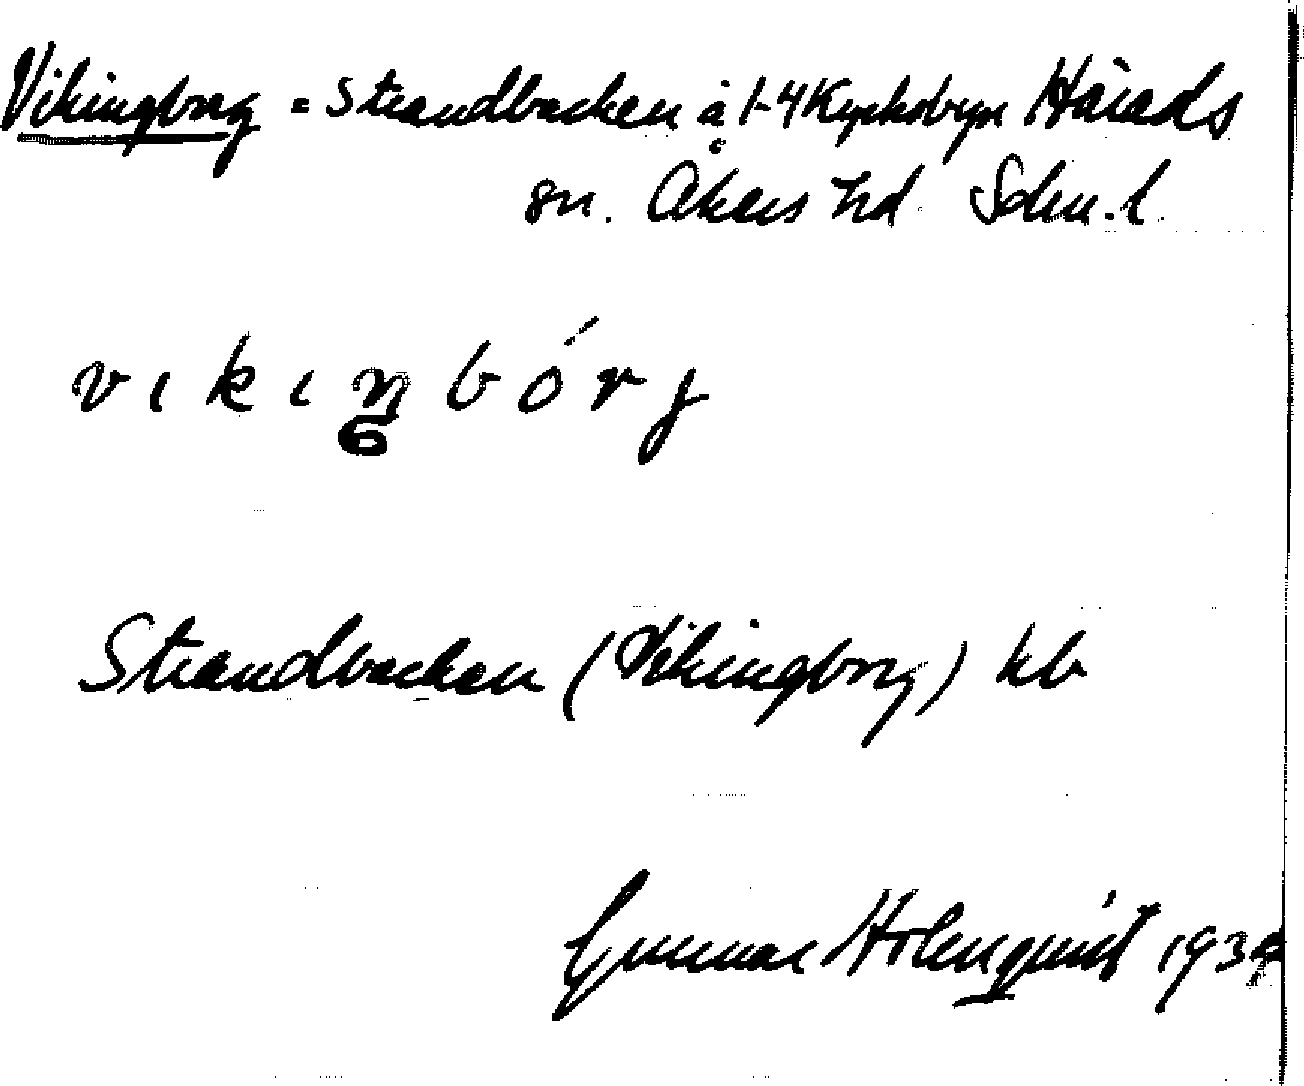 Vikingborg = Strandbacken å 1-4 Kyrkobyn Härads
sn. Åkers hd. Södm.l.
vıkıŋbórj
Strandbacken (Vikingborg) kb
Gunnar Holmquist